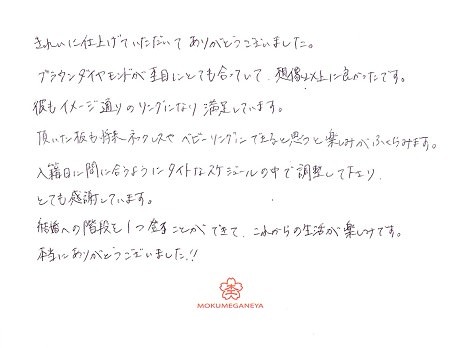 きれいに仕上げていただいてありがとうございました。
ブラウンダイヤモンドが木目にとても合っていて、想像以上に良かったです。
彼もイメージ通りのリングになり満足しています。
頂いた板も将来ネックレスやベビーリングにできると思うと楽しみがふくらみます。
入籍日に間に合うようにタイトなスケジュールの中で調整して下さり、
とても感謝しています。
結婚への階段を1つ登ることができて、これからの生活が楽しみです。
本当にありがとうございました!!
MOKUMEGANEYA